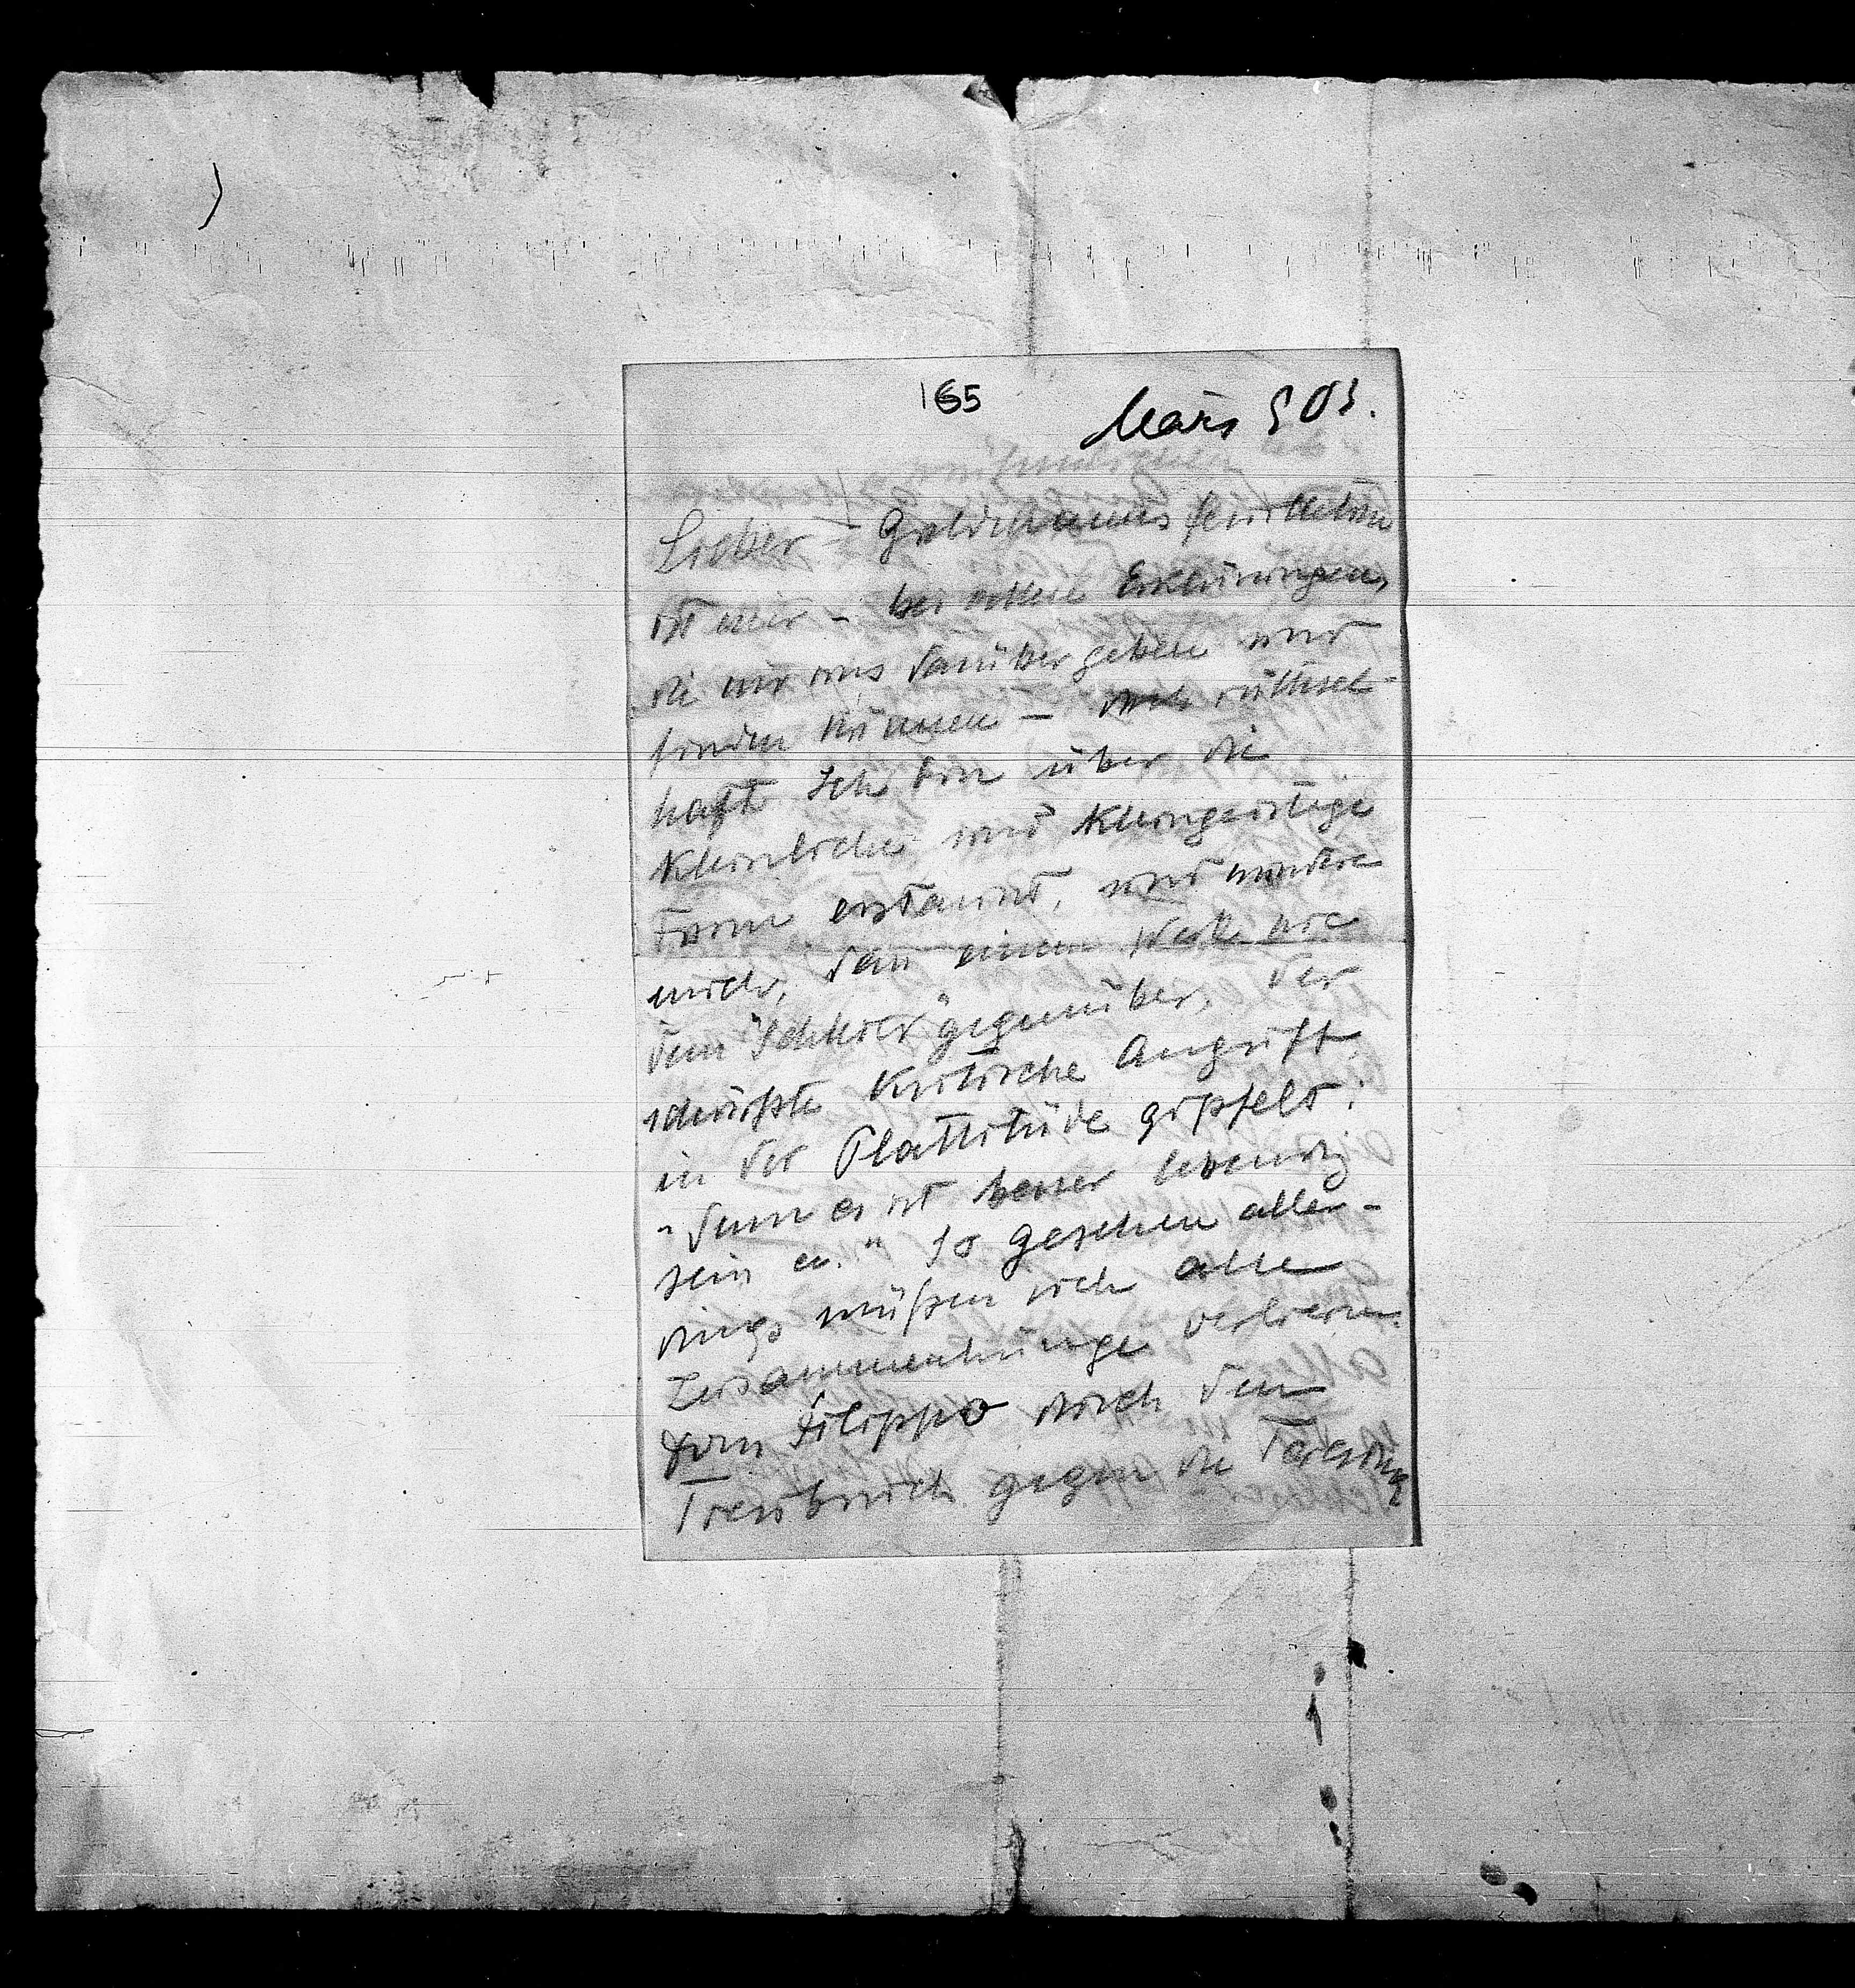 165
März 903.
Lieber – Goldmanns Feuilleton
ist mir – bei allen Erklärungen,
die wir uns darüber geben und
finden können – doch räthsel-
haft. Ich bin über die
kleinliche und kleingeistige
Form erstaunt, und wundere
mich, daß einem Werk wie
dem "Schleier" gegenüber, der
schärfste kritische Angriff,
in der Plattitüde gipfelt:
"denn es ist besser lebendig
sein etc." So gesehen aller-
dings müßen sich alle
Zusammenhänge verlieren.
Filippo durch den
Treubruch gegen die Teresina